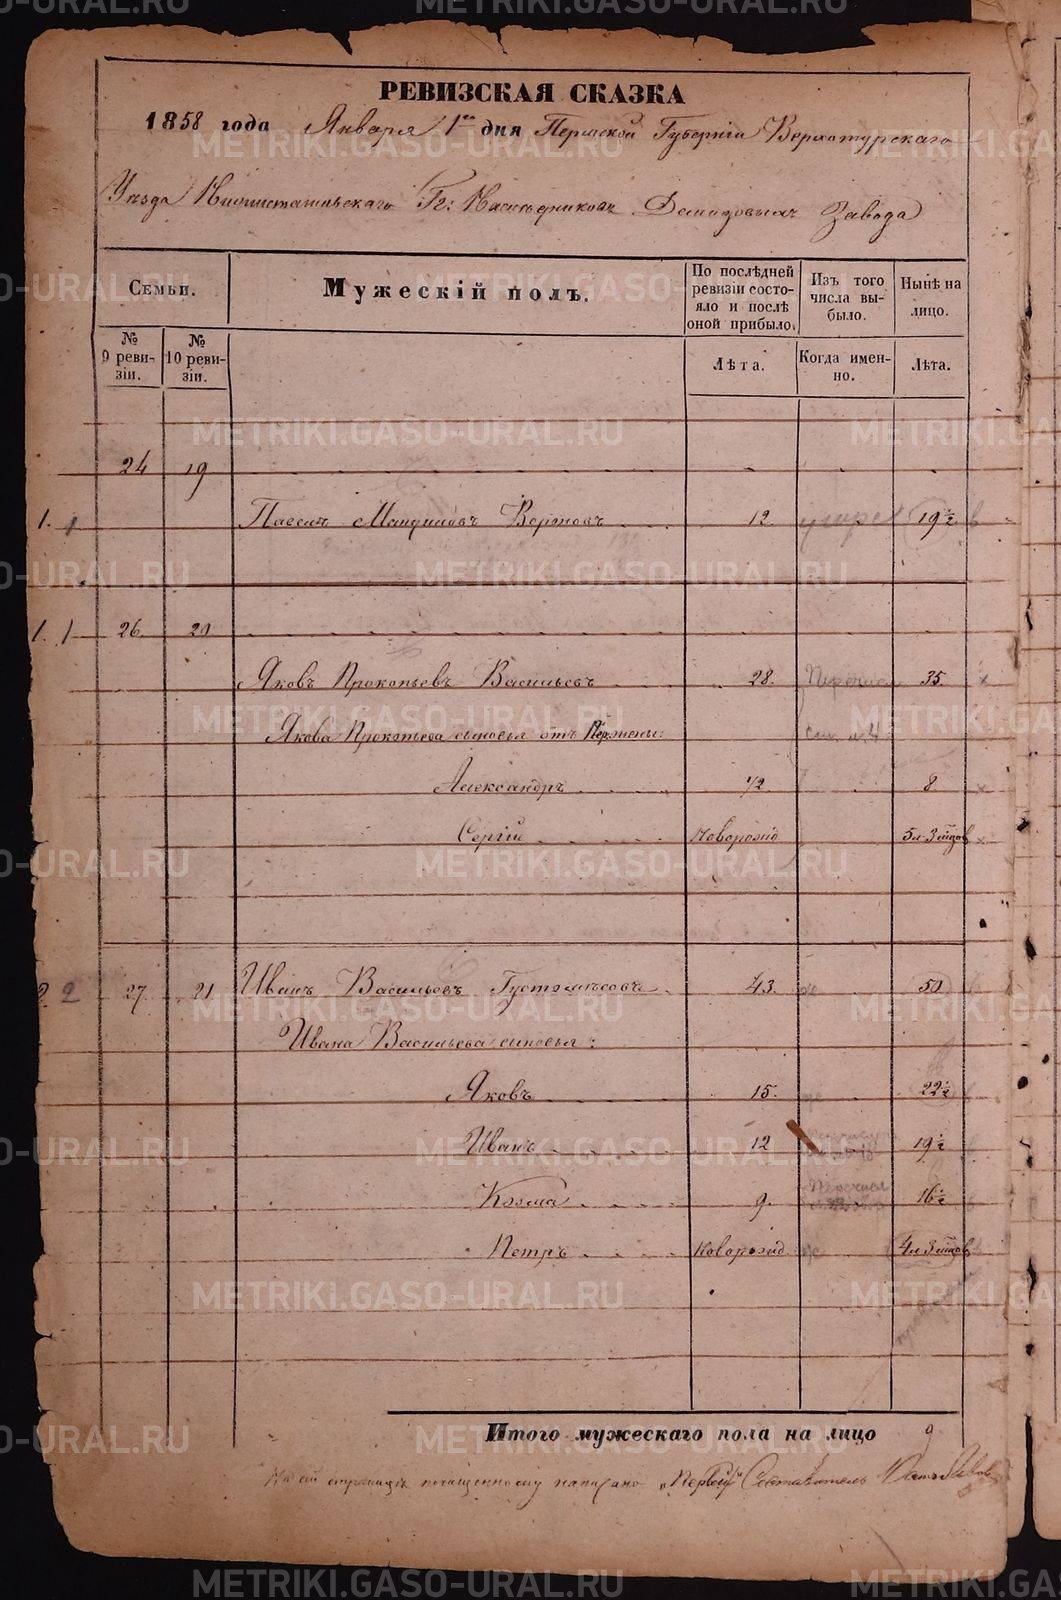 РЕВИЗСКАЯ СКАЗКА
1858 года Января 1го дня Пермской Губерніи Верхотурскаго
Уѣзда Нижнетагильскаго Гг: Наслѣдниковъ Демидовыхъ Завода
Семьи.
Мужескій полъ.
По послѣдней ревизіи состояло и послѣ оной прибыло.
Изъ того числа выбыло.
Нынѣ на лицо.
№ 9 ревизіи.
№ 10 ревизіи.
Лѣта.
Когда именно.
Лѣта.
24 19
1. 1 12 умре 19 ½ в
1. 1 26. 20
Яковъ Прокопьевъ Васильевъ 28. 35.
Якова Прокопьева сыновья отъ Первой жены:
Александръ ½ 8
Сергій Новорожд. 5 л. 3 мцов
2 2 27. 21 Иванъ Васильевъ 43. 50
Ивана Васильева сыновья:
Яковъ 15. 22 ½
Иванъ 12 19 ½
Козма 9. 16 ½
Петръ Новорожд 4 л 3 мцов
Итого мужескаго пола на лицо 9
На сей страницѣ почищенному написано „Первой" Составитель
METRIKI.GASO-URAL.RU